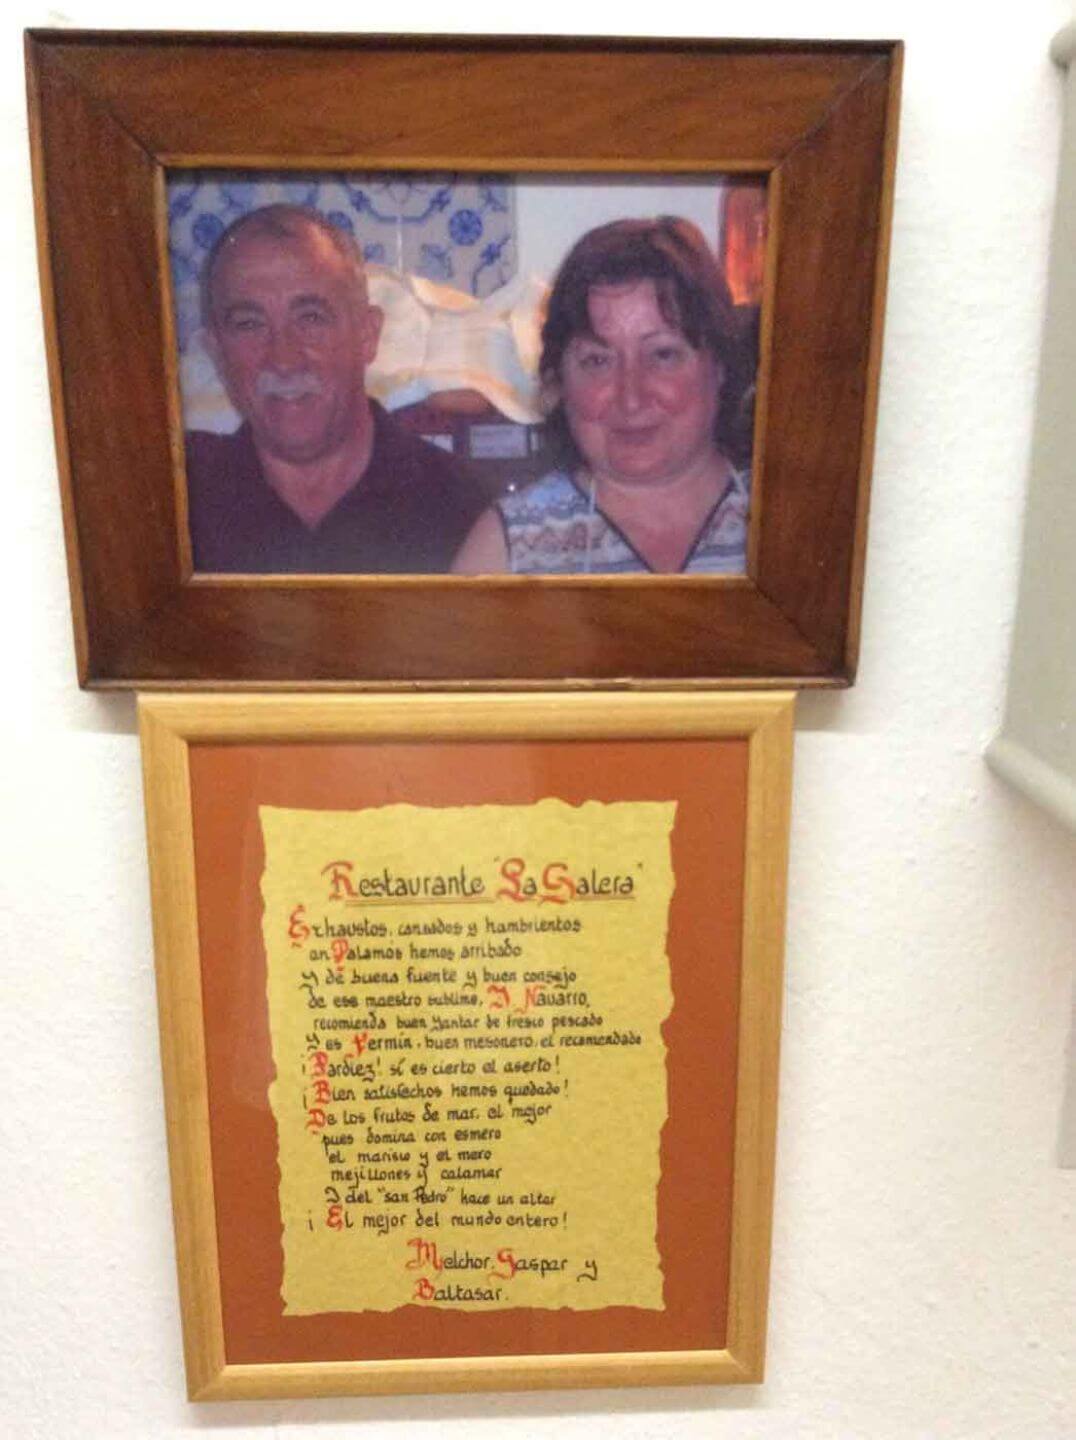 Restaurante "La Galera"
Exhaustos, cansados y hambrientos
an Palamós hemos arribado
y de buena fuente y buen consejo
de ese maestro sublime, D. Navarro,
recomienda buen yantar de fresco pescado
y es Fermín, buen mesonero, el recomendado
¡Pardiez! sí es cierto el aserto!
¡Bien satisfechos hemos quedado!
De los frutos de mar, el mejor
pues domina con esmero
el marisco y el mero
mejillones y calamar
I del "san Pedro" hace un altar
¡El mejor del mundo entero!
Melchor, Gaspar y
Baltasar.